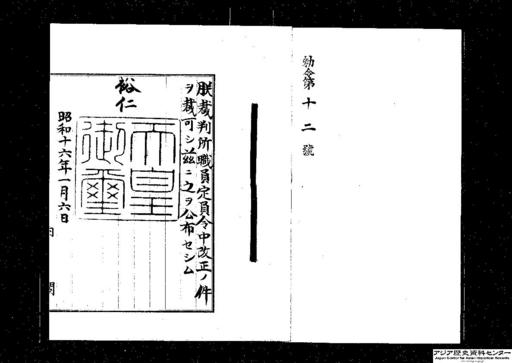 勅令第十二號
朕裁判所職員定員令中改正ノ件
ヲ裁可シ茲ニ之ヲ公布セシム
裕仁
天皇御璽
昭和十六年一月六日
内閣
アジア歴史資料センター
Japan Center for Asian Historical Records